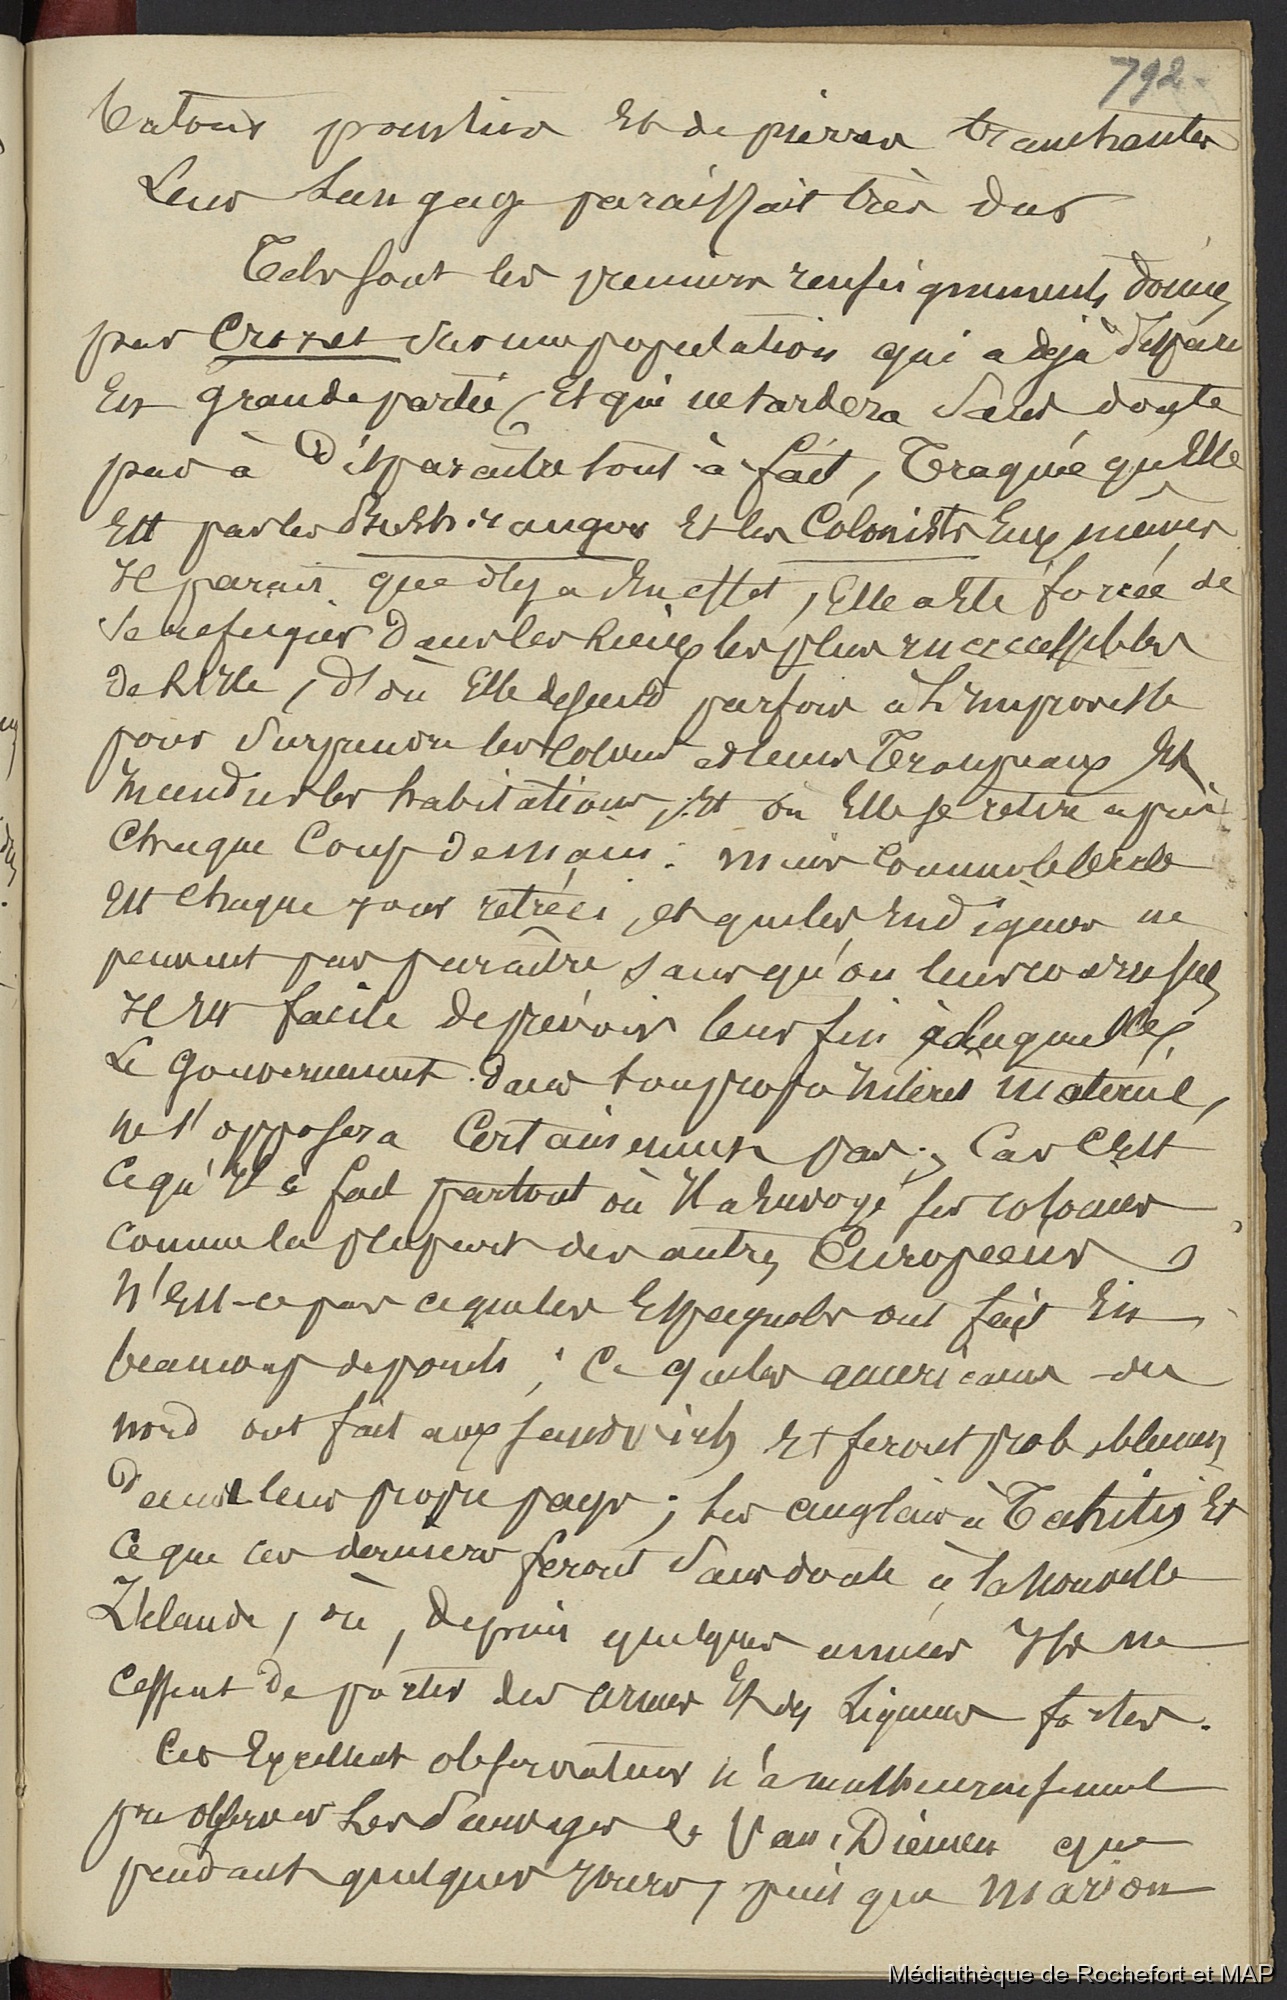 792
batons pointus Et de pierres tranchantes
Leur Langage paraissait très dur
Tels sont les premiers renseignements donnés
par Crozet sur une population qui a déjà disparu
En grande partie, Et qui ne tardera sans doute
pas à Disparaitre tout à fait, Traquée qu'Elle
Est par les Bushrangers Et les Colonists Eux mêmes
Il parait que d'ici a En effet, Elle a Eté forcée de
Se refugier Dans les lieux les plus inaccessibles
De L'Isle, D'où Elle descend parfois à L'Improviste
pour Surprendre les Colons et leurs Troupeaux Et
Incendier les habitations, Et où Elle se retire après
Chaque Coup de main : mais Comme le Cercle
Est Chaque jour rétréci, et que les Indigènes ne
peuvent pas paraître sans qu'on leur coure sus,
Il Est facile de prévoir leur fin à laquelle
Le Gouvernement dans son propre Intérêt matériel,
ne s'opposera Certainement pas ; Car C'Est
Ce qu'Il a fait partout où Il a Envoyé ses colonies
Comme la plupart des autres Européens
N'Est-ce pas ce que les Espagnols ont fait En
beaucoup de points ; Ce que les américains du
nord ont fait aux sandwich Et feront probablement
Dans leur propre pays ; Les anglais à Tahiti, Et
Ce que ces derniers feront Sans doute à la Nouvelle
Zélande, où, depuis quelques années Ils ne
Cessent De porter des armes Et des Liqueurs fortes.
Cet Excellent observateur n'a malheureusement
pu observer Les Sauvages de Van Diémen que
pendant quelques jours, puis que Marion
Médiathèque de Rochefort et MAP